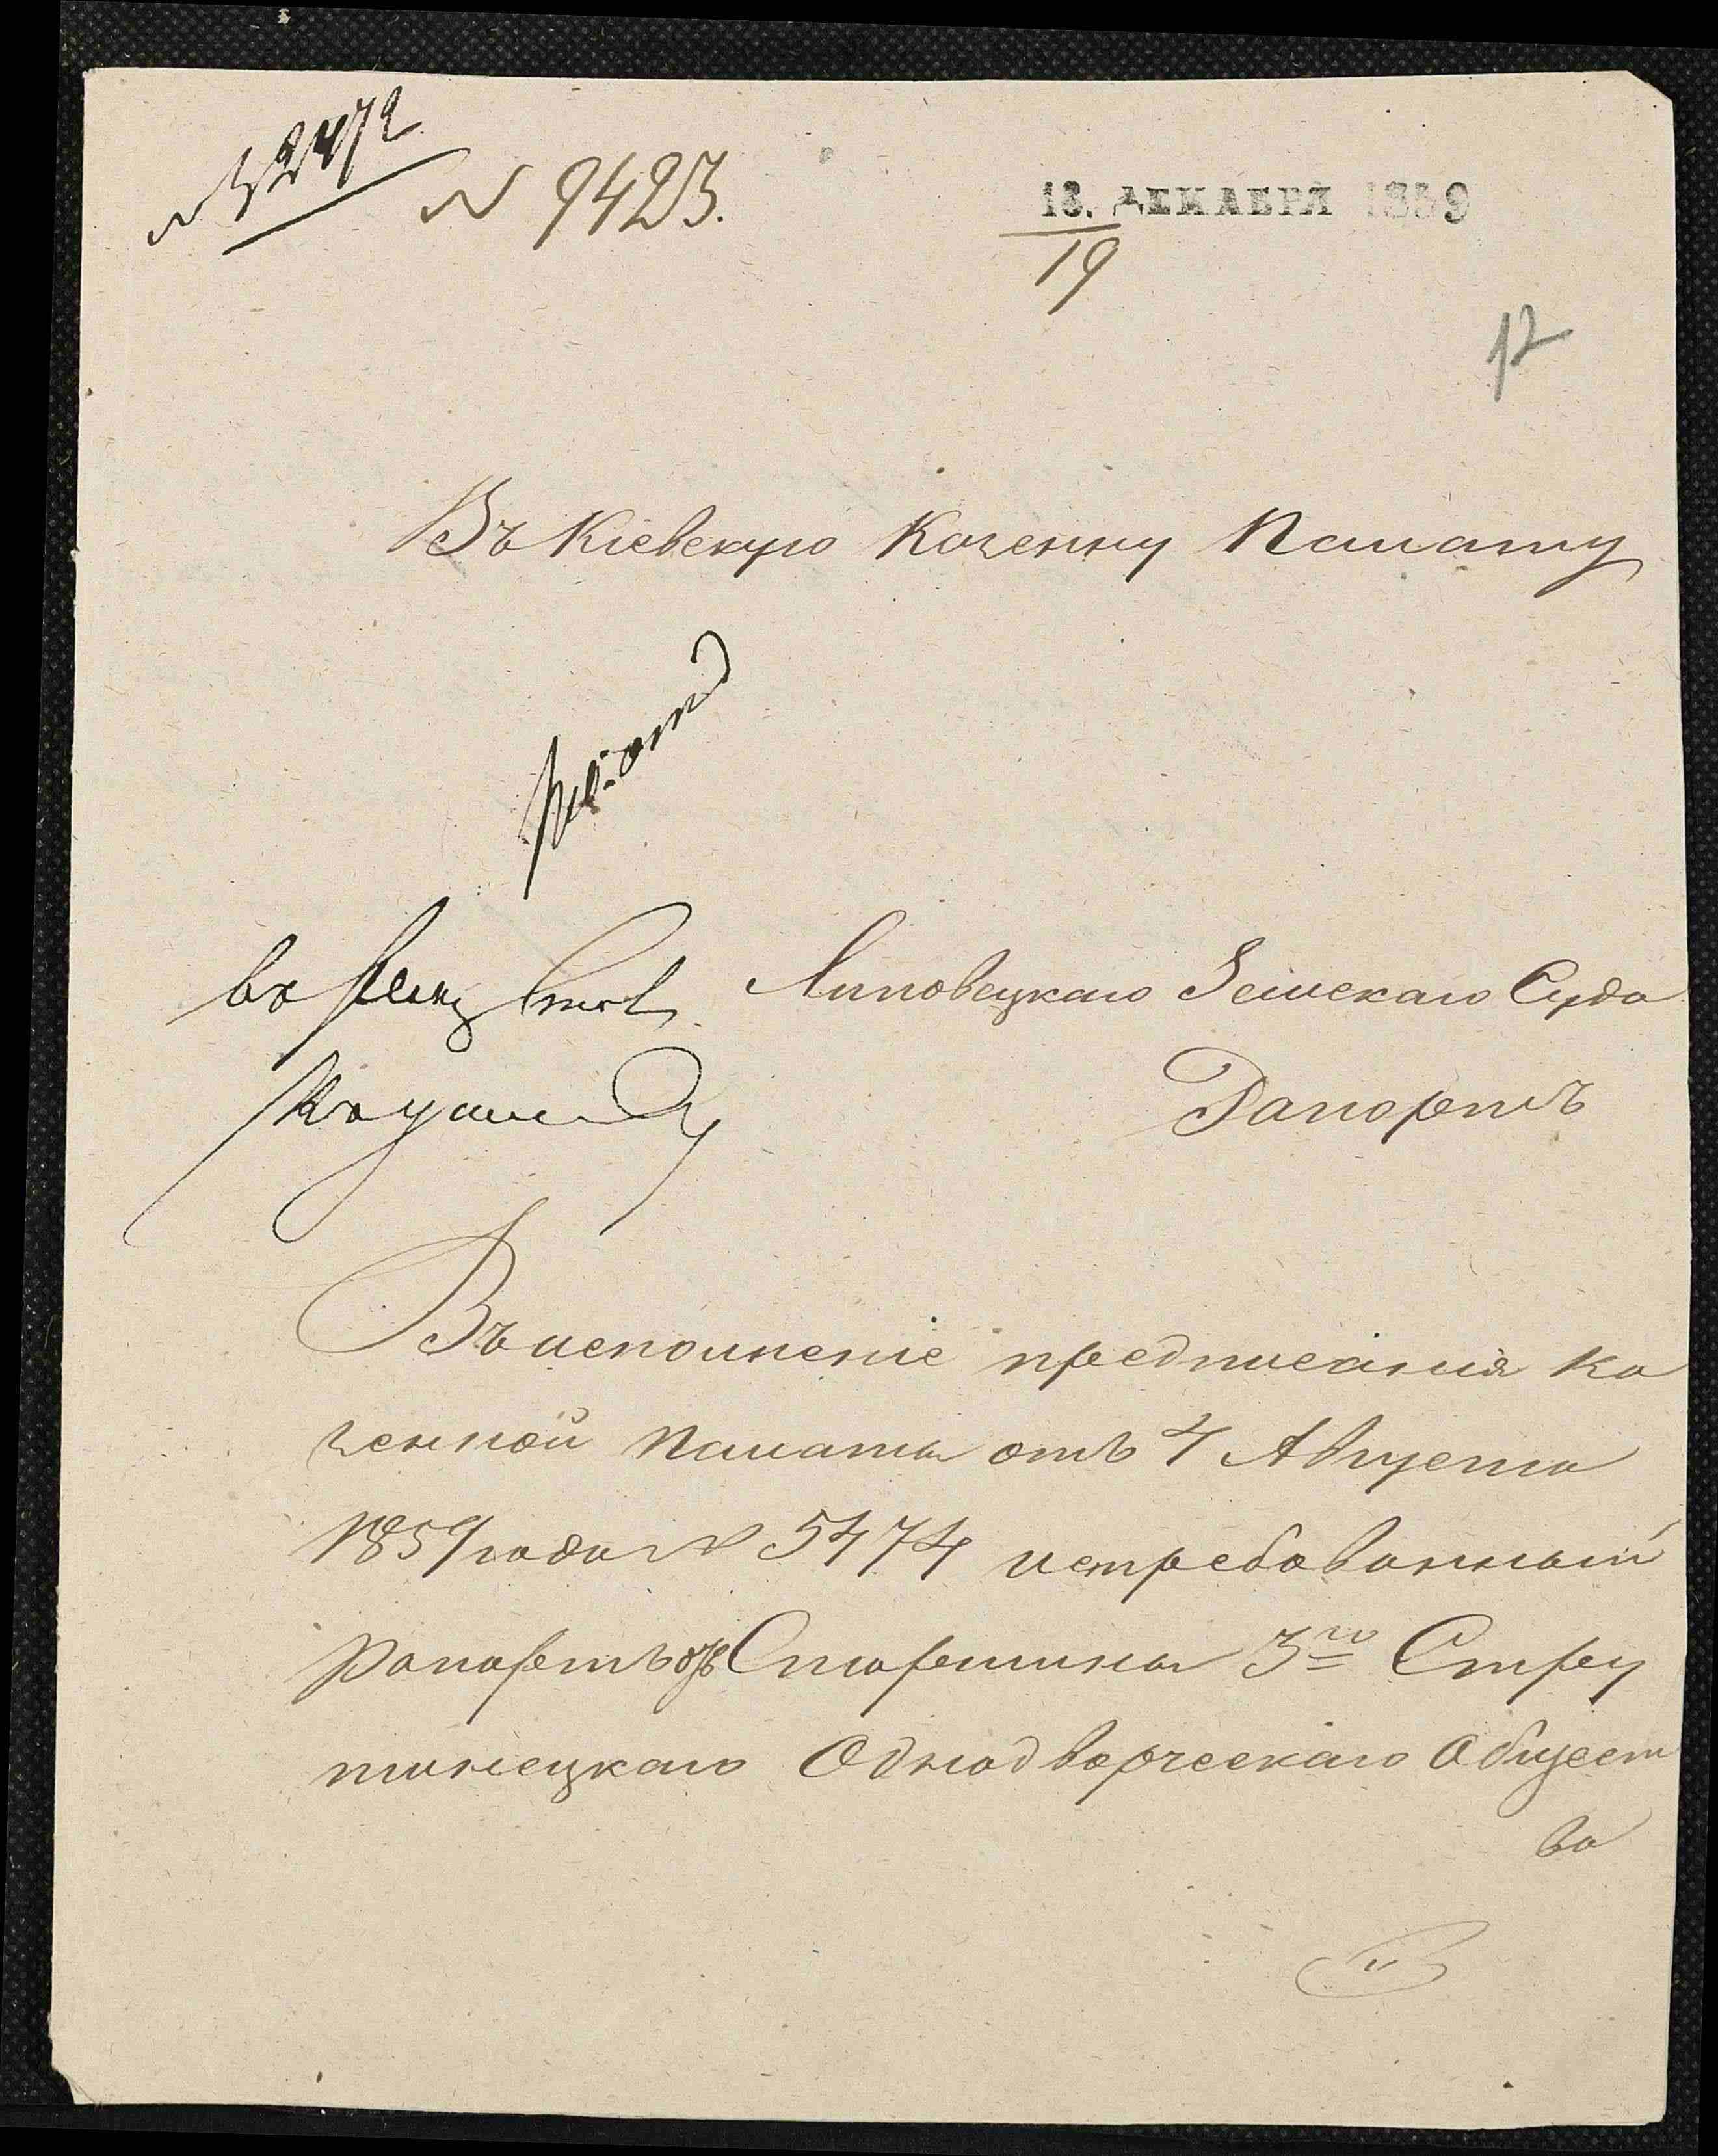 № 9423.
18. ДЕКАБРЯ 1859
19
12
Въ Кіевскую Козенну Палату
Липовецкаго Земскаго Суда
Рапортъ
Въ исполненіе предписанія Ка
зенной Палаты отъ 4 Августа
1859 года № 5474 истребованный
рапортъ отъ Старшины 3го Стру
тинецкаго Однодворческаго Общест
ва